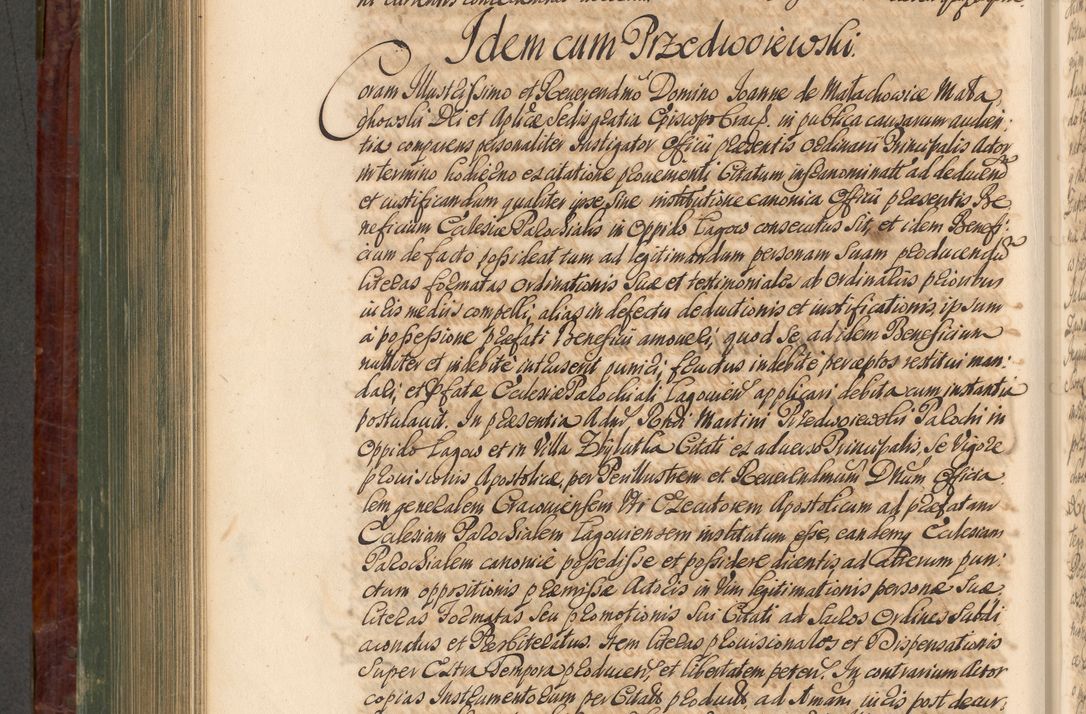 Idem cum Przedwoiewski.
Coram Illustrissimo et Reverendno Domino Joanne de Małachowice Mała,
chowski Dei et Aplicæ Sedis gratia Episcopo Crac. in publica causarum audien,
tia comparens personaliter Instigator Officii præsentis ordinarii Principalis Actor
in termino hodierno ex citatione provenienti Citatum infranominatum ad deducend
et iustificandum qualiter ipse, sine institutione canonica Officii præsentis Be
neficium Ecclesiæ Parochialis in oppido Łagow consecutus sit, et idem Benefi,
cium de facto possideat tum ad legitimandum personam suam producendu
literas formatas ordinationis suæ et testimoniales ab ordinariis prioribus
iuris mediis compelli, alias in defectu deductionis et iustificationis, ipsum
à possessione præfati Beneficii amoveri, quod se ad idem Beneficium
nulliter et indebitè intruserit puniri, fructus indebitè perceptos restitui man,
dari, et Pfatæ Ecclesiæ Parochiali Lagovien applicari debita cum instantia
postulavit. In præsentia Adm Rndi Martini Przedwoiewski Parochi in
Oppido Łagow et in Villa Zbylutka Citati ex adverso Principalis, se Vigore
provisionis Apostolicæ, per Perillustrem et Reverendmum Dnum Officia
lem generalem Cracoviensem Uti Executorem Apostolicum ad præfatam
Ecclesiam Parochialem Lagoviensem institutum esse, eandemq Ecclesiam
Parochialem canonicè possedisse et possidere dicentis, ad alterum pun,
ctum oppositionis præmissæ Actoris in Vim legitimationis personæ suæ,
literas Formatas seu promotionis sui Citati ad Sacros Ordines Subdi
aconatus et Presbiteratus. Item literas provisionales et Dispensationis
super Extra Tempora producen, et libertatem peten. In contrarium Actor
copias Instrumentorum per Citatu product, ad Aman, iuris post decur,